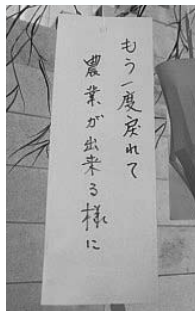 もう一度戻れて
農業が出来る様に